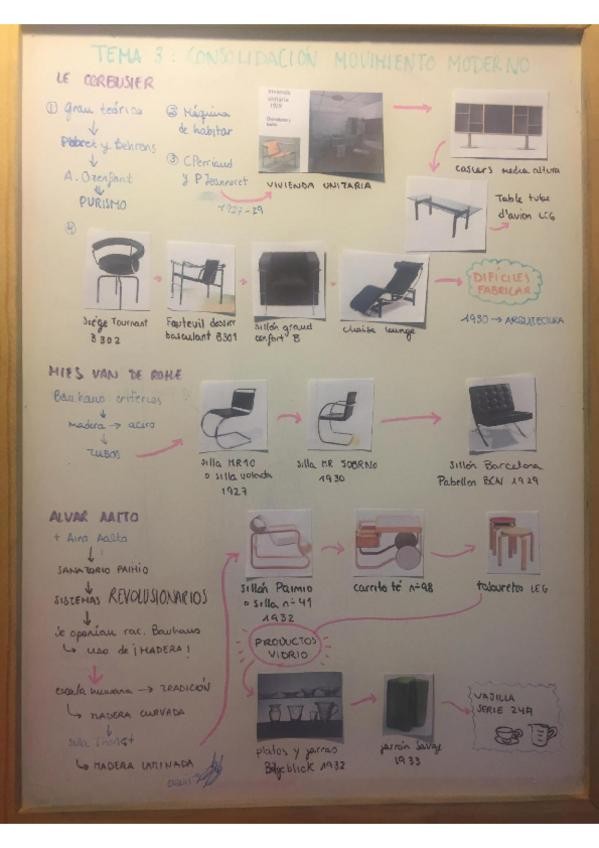 TEMA 3: CONSOLIDACIÓN MOVIMIENTO MODERNO
LE CORBUSIER
① Gran teórico
Perret y Behrens
A. Ozenfant
PURISMO
② Máquina
de habitar
③ C Perriand
y P Jeanneret
1927-29
vivienda
unitaria
VIVIENDA UNITARIA
casiers media altura
Table tube
d'avion LC6
④
Siège Tournant
B302
Fauteuil dossier
basculant B301
Sillón grand
confort B
Chaise lounge
DIFÍCILES
FABRICAR
1930 → ARQUITECTURA
MIES VAN DE ROHE
Bauhaus criterios
madera → acero
TUBOS
Silla MR10
o silla volada
1927
Silla MR
1930
Sillón Barcelona
Pabellon BCN 1929
ALVAR AALTO
+ Aino Aalto
SANATORIO PAIMIO
SISTEMAS REVOLUSIONARIOS
Se oponían rac. Bauhaus
↳ uso de ¡MADERA!
escala humana → TRADICIÓN
↳ MADERA CURVADA
silla
↳ MADERA LAMINADA
Sillón Paimio
o silla nº 41
1932
carrito té nº 98
taburetes
PRODUCTOS
VIDRIO
platos y jarras
Bölgeblick 1932
jarrón Savoy
1933
VAJILLA
SERIE